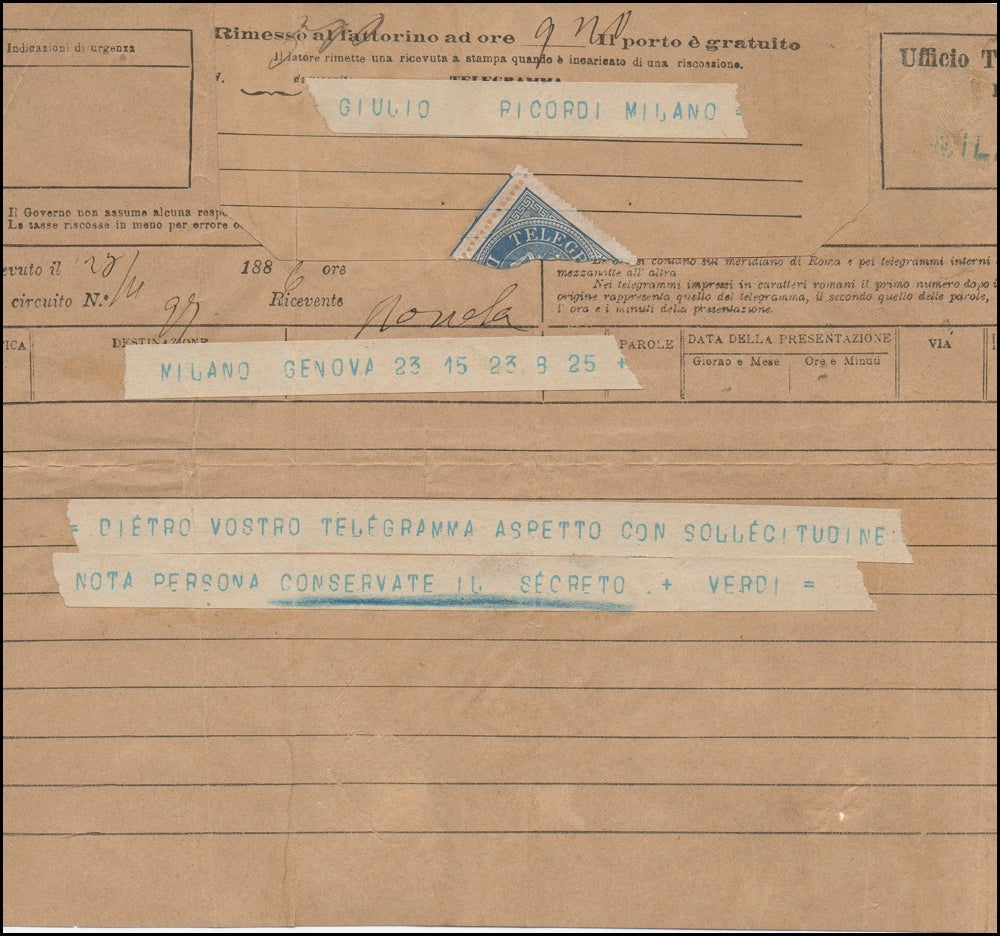 Rimesso al fattorino ad ore 9 Il porto è gratuito
Indicazioni di urgenza
Il latore rimette una ricevuta a stampa quando è incaricato di una riscossione.
TELEGRAMMA
Ufficio T
GIULIO RICORDI MILANO =
MIL
Il Governo non assume alcuna resp
Le tasse riscosse in meno per errore o
TELEGR
evuto il 188 6 ore
Le ore si contano sul meridiano di Roma e pei telegrammi interni
mezzanotte all'altra
Nei telegrammi impressi in caratteri romani il primo numero dopo
origine rappresenta quello del telegramma, il secondo quello delle parole,
l'ora e i minuti della presentazione.
circuito N.° Ricevente
ICA DESTINAZIONE PAROLE DATA DELLA PRESENTAZIONE VIA
Giorno e Mese Ore e Minuti
MILANO GENOVA 23 15 23 8 25 +
= DIÉTRO VOSTRO TELÉGRAMMA ASPETTO CON SOLLÉCITUDINE
NOTA PERSONA CONSERVATE IL SÉCRETO . + VERDI =